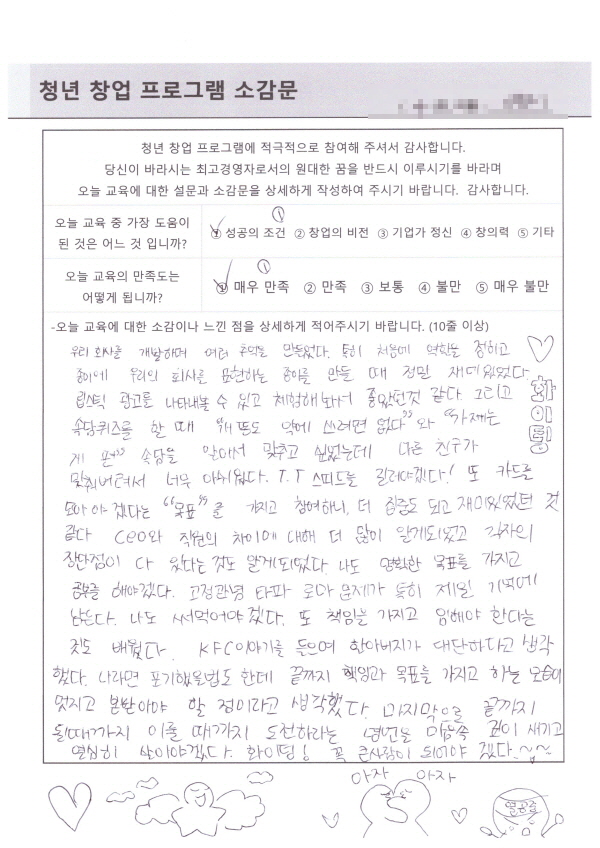 청년 창업 프로그램 소감문
청년 창업 프로그램에 적극적으로 참여해 주셔서 감사합니다.
당신이 바라시는 최고경영자로서의 원대한 꿈을 반드시 이루시기를 바라며
오늘 교육에 대한 설문과 소감문을 상세하게 작성하여 주시기 바랍니다. 감사합니다.
오늘 교육 중 가장 도움이
된 것은 어느 것 입니까?
①
① 성공의 조건 ② 창업의 비전 ③ 기업가 정신 ④ 창의력 ⑤ 기타
오늘 교육의 만족도는
어떻게 됩니까?
①
① 매우 만족 ② 만족 ③ 보통 ④ 불만 ⑤ 매우 불만
-오늘 교육에 대한 소감이나 느낀 점을 상세하게 적어주시기 바랍니다. (10줄 이상)
우리 회사를 개발하며 여러 추억을 만들었다. 특히 처음에 역할을 정하고
종이에 우리의 회사를 표현하는 종이를 만들 때 정말 재미있었다.
립스틱 광고를 나타내볼 수 있고 체험해봐서 좋았던것 같다 그리고
속담퀴즈를 할 때 "개똥도 약에 쓰려면 없다"와 "가재는
게 편" 속담을 알아서 맞추고 싶었는데 다른 친구가
맞춰버려서 너무 아쉬웠다. T.T 스피드를 길러야겠다! 또 카드를
모아야겠다는 "목표"를 가지고 참여하니, 더 집중도 되고 재미있었던 것
같다 CEO와 직원의 차이에 대해 더 많이 알게되었고 각자의
장단점이 다 있다는 것도 알게되었다. 나도 명확한 목표를 가지고
공부를 해야겠다. 고정관념 타파 로마 문제가 특히 제일 기억에
남는다. 나도 써먹어야 겠다. 또 책임을 가지고 임해야 한다는
것도 배웠다. KFC이야기를 들으며 할아버지가 대단하다고 생각
했다. 나라면 포기했을법도 한데 끝까지 책임과 목표를 가지고 하는 모습이
멋지고 본받아야 할 점이라고 생각했다. 마지막으로 끝까지
될때까지 이룰 때까지 도전하라는 명언을 마음속 깊이 새기고
열심히 살아야겠다. 화이팅! 꼭 큰사람이 되어야 겠다.~~
화이팅
아자 아자
열공중